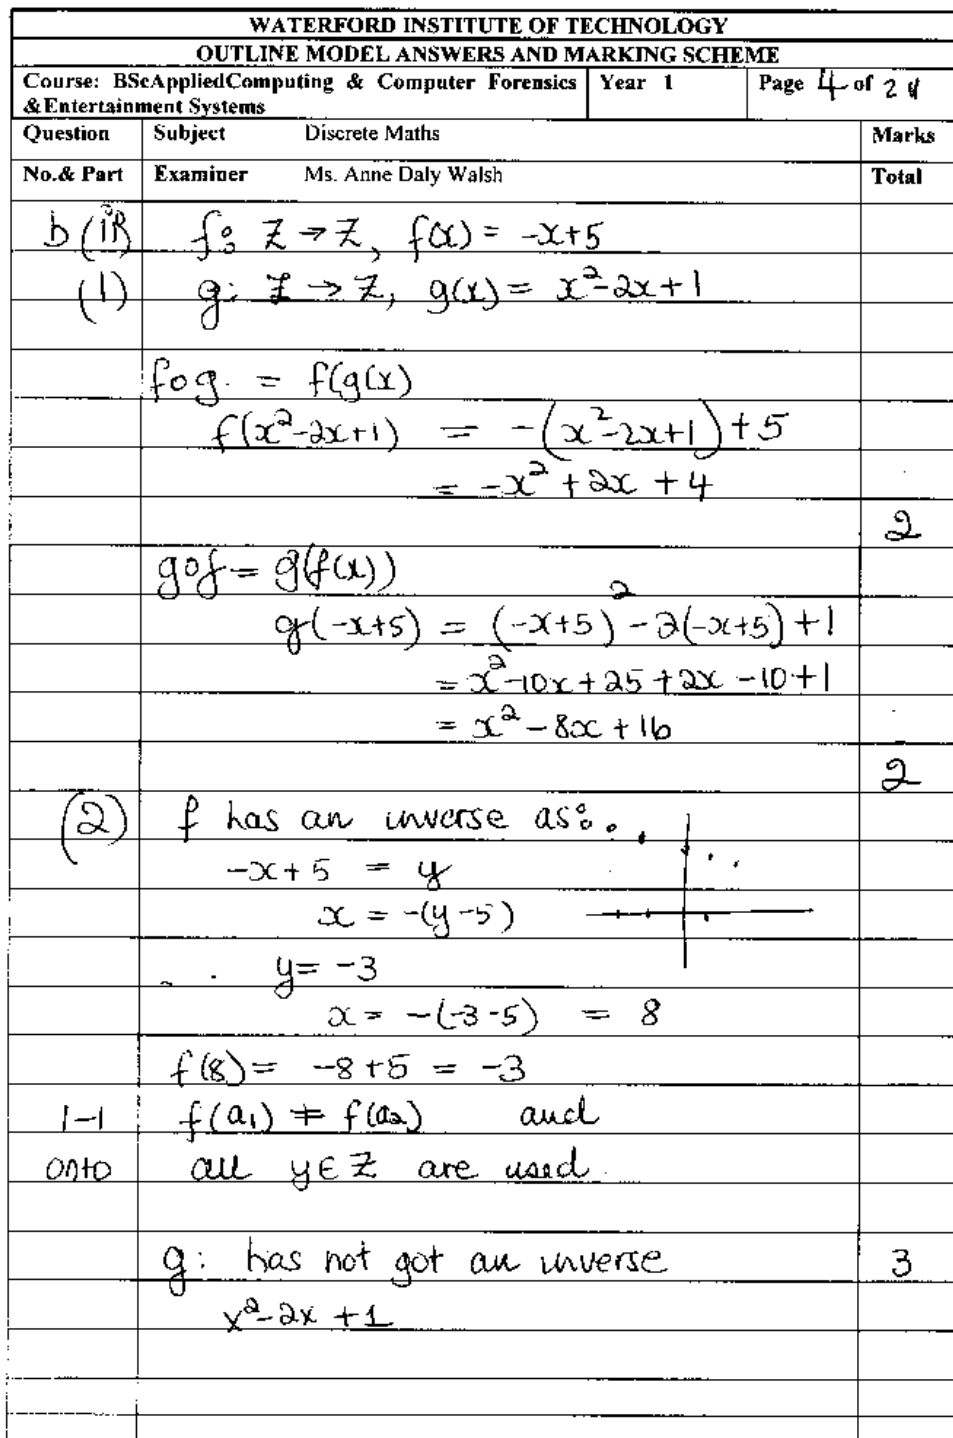 WATERFORD INSTITUTE OF TECHNOLOGY
OUTLINE MODEL ANSWERS AND MARKING SCHEME
Course: BScAppliedComputing & Computer Forensics &Entertainment Systems Year 1 Page 4 of
Question Subject Discrete Maths Marks
No.& Part Examiner Ms. Anne Daly Walsh Total
b f: Z → Z, f(x) = -x+5
(1) g: Z → Z, g(x) = x²-2x+1
fog. = f(g(x)
f(x²-2x+1) = -(x²-2x+1)+5
= -x² + 2x + 4
2
gof = g(f(x))
g(-x+5) = (-x+5)² - 2(-x+5) + 1
= x²-10x + 25 + 2x - 10 + 1
= x² - 8x + 16
2
(2) f has an inverse as:
-x + 5 = y
x = -(y-5)
y = -3
x = -(-3-5) = 8
f(8) = -8+5 = -3
1-1 f(a₁) ≠ f(a₂) and
onto all y∈Z are used.
g: has not got an inverse 3
x²-2x+1